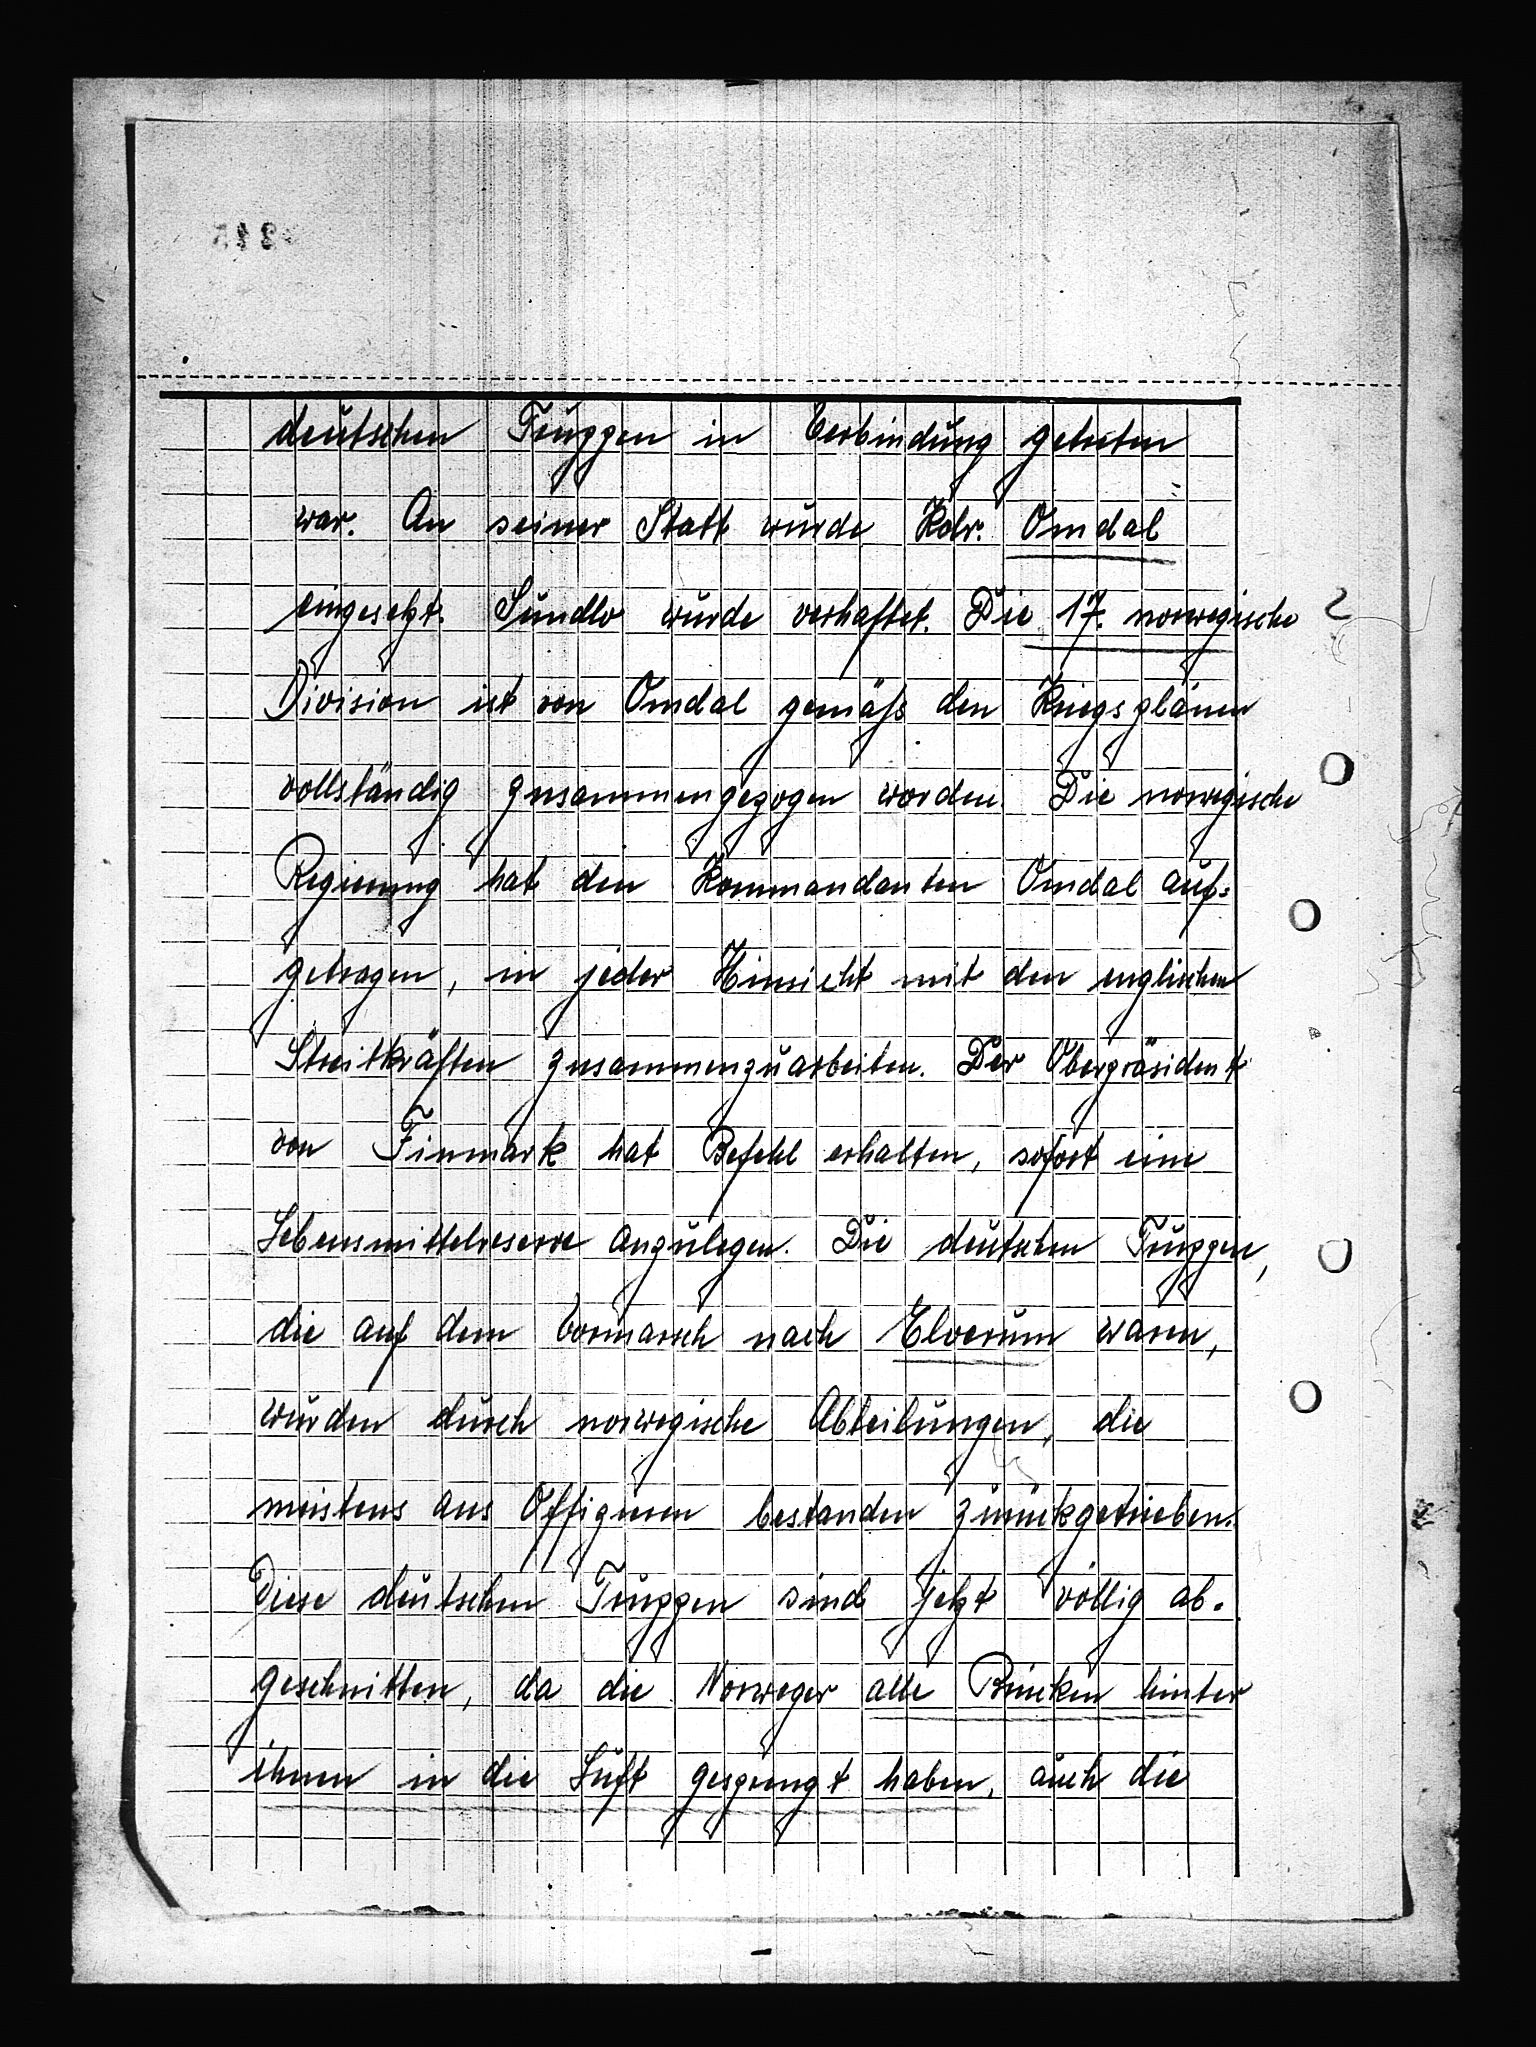 deutschen Truppen in Verbindung getreten
war. An seiner Statt wurde Kdr. Omdal
eingesetzt. Sundlo wurde verhaftet. Die 17. norwegische
Division ist von Omdal gemäß den Kriegsplänen
vollständig zusammengezogen worden. Die norwegische
Regierung hat den Kommandanten Omdal auf-
getragen, in jeder Hinsicht mit den englischen
Streitkräften zusammenzuarbeiten. Der Oberpräsident
von Finmark hat Befehl erhalten, sofort eine
Lebensmittelreserve anzulegen. Die deutschen Truppen,
die auf dem Vormarsch nach Elverum waren,
wurden durch norwegische Abteilungen, die
meistens aus Offizieren bestanden zurückgetrieben.
Diese deutschen Truppen sind jetzt völlig ab-
geschnitten, da die Norweger alle Brücken hinter
ihnen in die Luft gesprengt haben, auch die